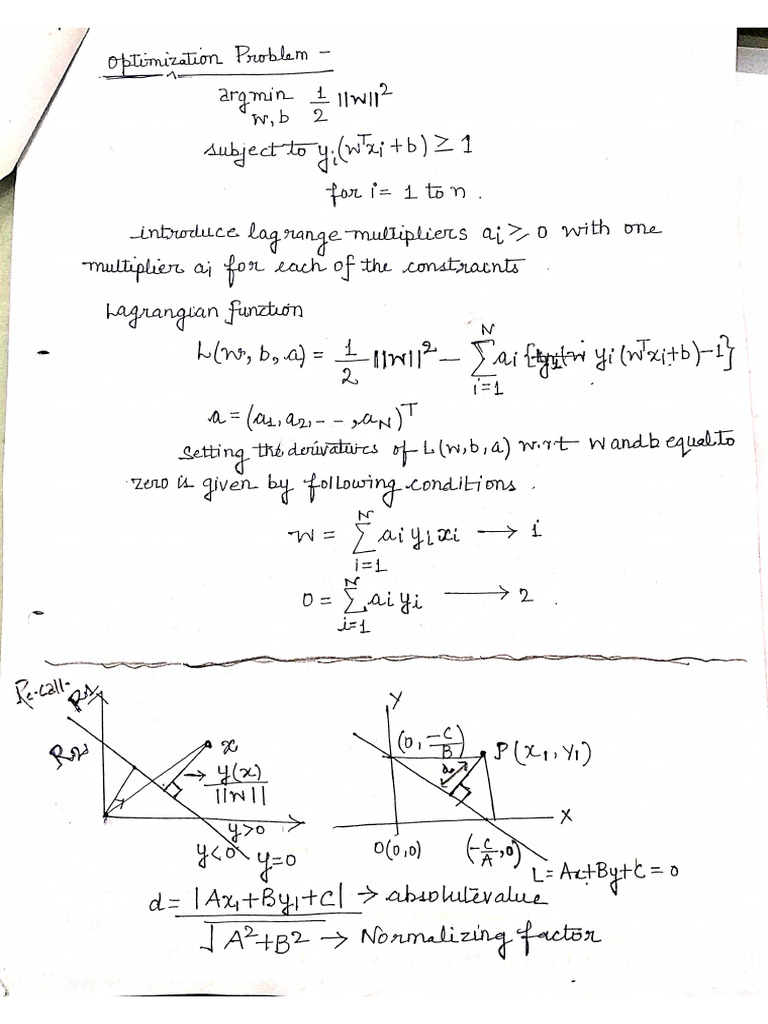 Optimization Problem -
argmin 1/2 ||w||²
w, b
subject to yᵢ(wᵀxᵢ + b) ≥ 1
for i = 1 to n .
introduce lagrange multipliers aᵢ ≥ 0 with one
multiplier aᵢ for each of the constraints .
Lagrangian function
L(w, b, a) = 1/2 ||w||² - Σ_{i=1}^{N} aᵢ { yᵢ (wᵀxᵢ + b) - 1 }
a = (a₁, a₂, - - , a_N)ᵀ
setting the derivatures of L(w, b, a) w.r.t w and b equal to
zero is given by following conditions .
w = Σ_{i=1}^{N} aᵢ yᵢ xᵢ → 1
0 = Σ_{i=1}^{N} aᵢ yᵢ → 2 .
Re-call-
x
→ y(x) / ||w||
y>0
y<0
y=0
Y
(0, -C/B)
P(x₁, y₁)
X
O(0,0)
(-C/A, 0)
L = Ax + By + C = 0
d = |Ax₁ + By₁ + C| → absolute value
√A² + B² → Normalizing factor